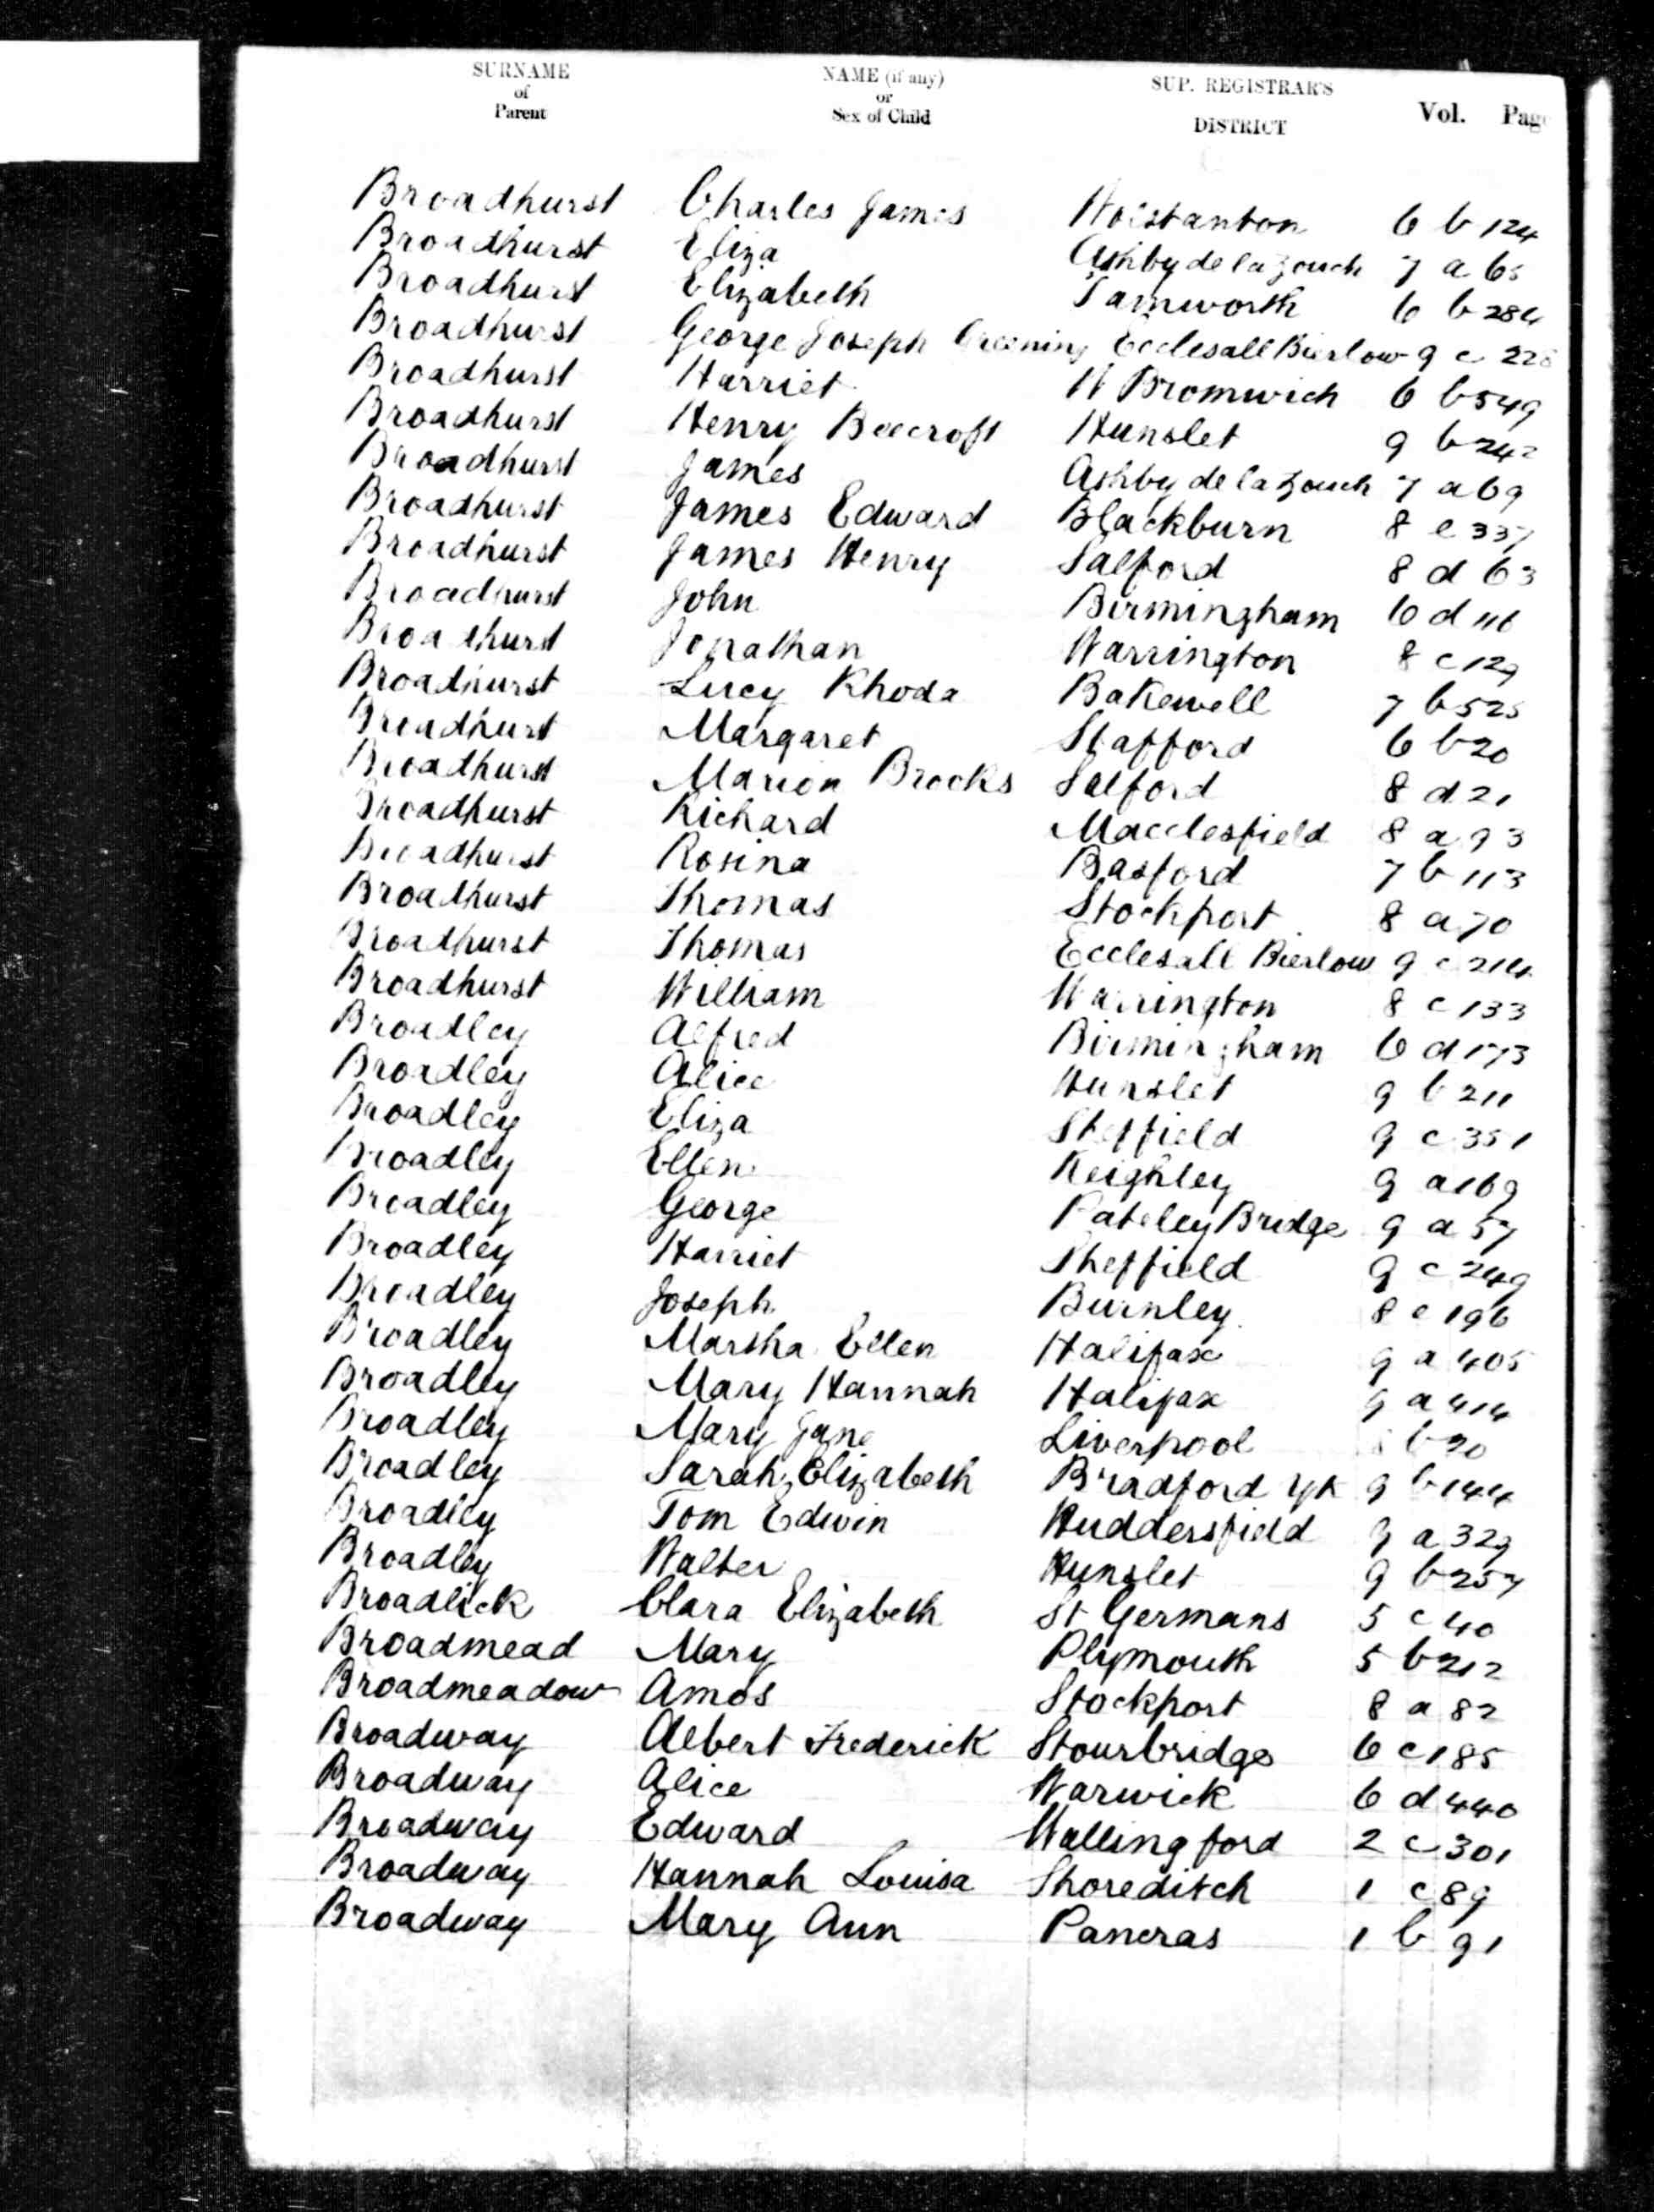 SURNAME of Parent NAME (if any) or Sex of Child SUP. REGISTRAR'S DISTRICT Vol. Page
Broadhurst Charles James Wolstanton 6 b 124
Broadhurst Eliza Ashby de la Zouch 7 a
Broadhurst Elizabeth Tamworth 6 b 284
Broadhurst George Joseph Greening Ecclesall Bierlow 9 c 228
Broadhurst Harriet W Bromwich 6 b 549
Broadhurst Henry Beecroft Hunslet 9 b 242
Broadhurst James Ashby de la Zouch 7 a 69
Broadhurst James Edward Blackburn 8 e 337
Broadhurst James Henry Salford 8 d 63
Broadhurst John Birmingham 6 d 116
Broadhurst Jonathan Warrington 8 c 129
Broadhurst Lucy Rhoda Bakewell 7 b 525
Broadhurst Margaret Stafford 6 b 20
Broadhurst Marion Brooks Salford 8 d 21
Broadhurst Richard Macclesfield 8 a 93
Broadhurst Rosina Basford 7 b 113
Broadhurst Thomas Stockport 8 a 70
Broadhurst Thomas Ecclesall Bierlow 9 c 214
Broadhurst William Warrington 8 c 133
Broadley Alfred Birmingham 6 d 173
Broadley Alice Hunslet 9 b 211
Broadley Eliza Sheffield 9 c 351
Broadley Ellen Keighley 9 a 169
Broadley George Pateley Bridge 9 a 57
Broadley Harriet Sheffield 9 c 249
Broadley Joseph Burnley 8 e 196
Broadley Martha Ellen Halifax 9 a 405
Broadley Mary Hannah Halifax 9 a 414
Broadley Mary Jane Liverpool 8 b 20
Broadley Sarah Elizabeth Bradford Yk 9 b 144
Broadley Tom Edwin Huddersfield 9 a 329
Broadley Walter Hunslet 9 b 257
Broadlick Clara Elizabeth St Germans 5 c 40
Broadmead Mary Plymouth 5 b 212
Broadmeadow Amos Stockport 8 a 82
Broadway Albert Frederick Stourbridge 6 c 185
Broadway Alice Warwick 6 d 440
Broadway Edward Wallingford 2 c 301
Broadway Hannah Louisa Shoreditch 1 c 89
Broadway Mary Ann Pancras 1 b 91